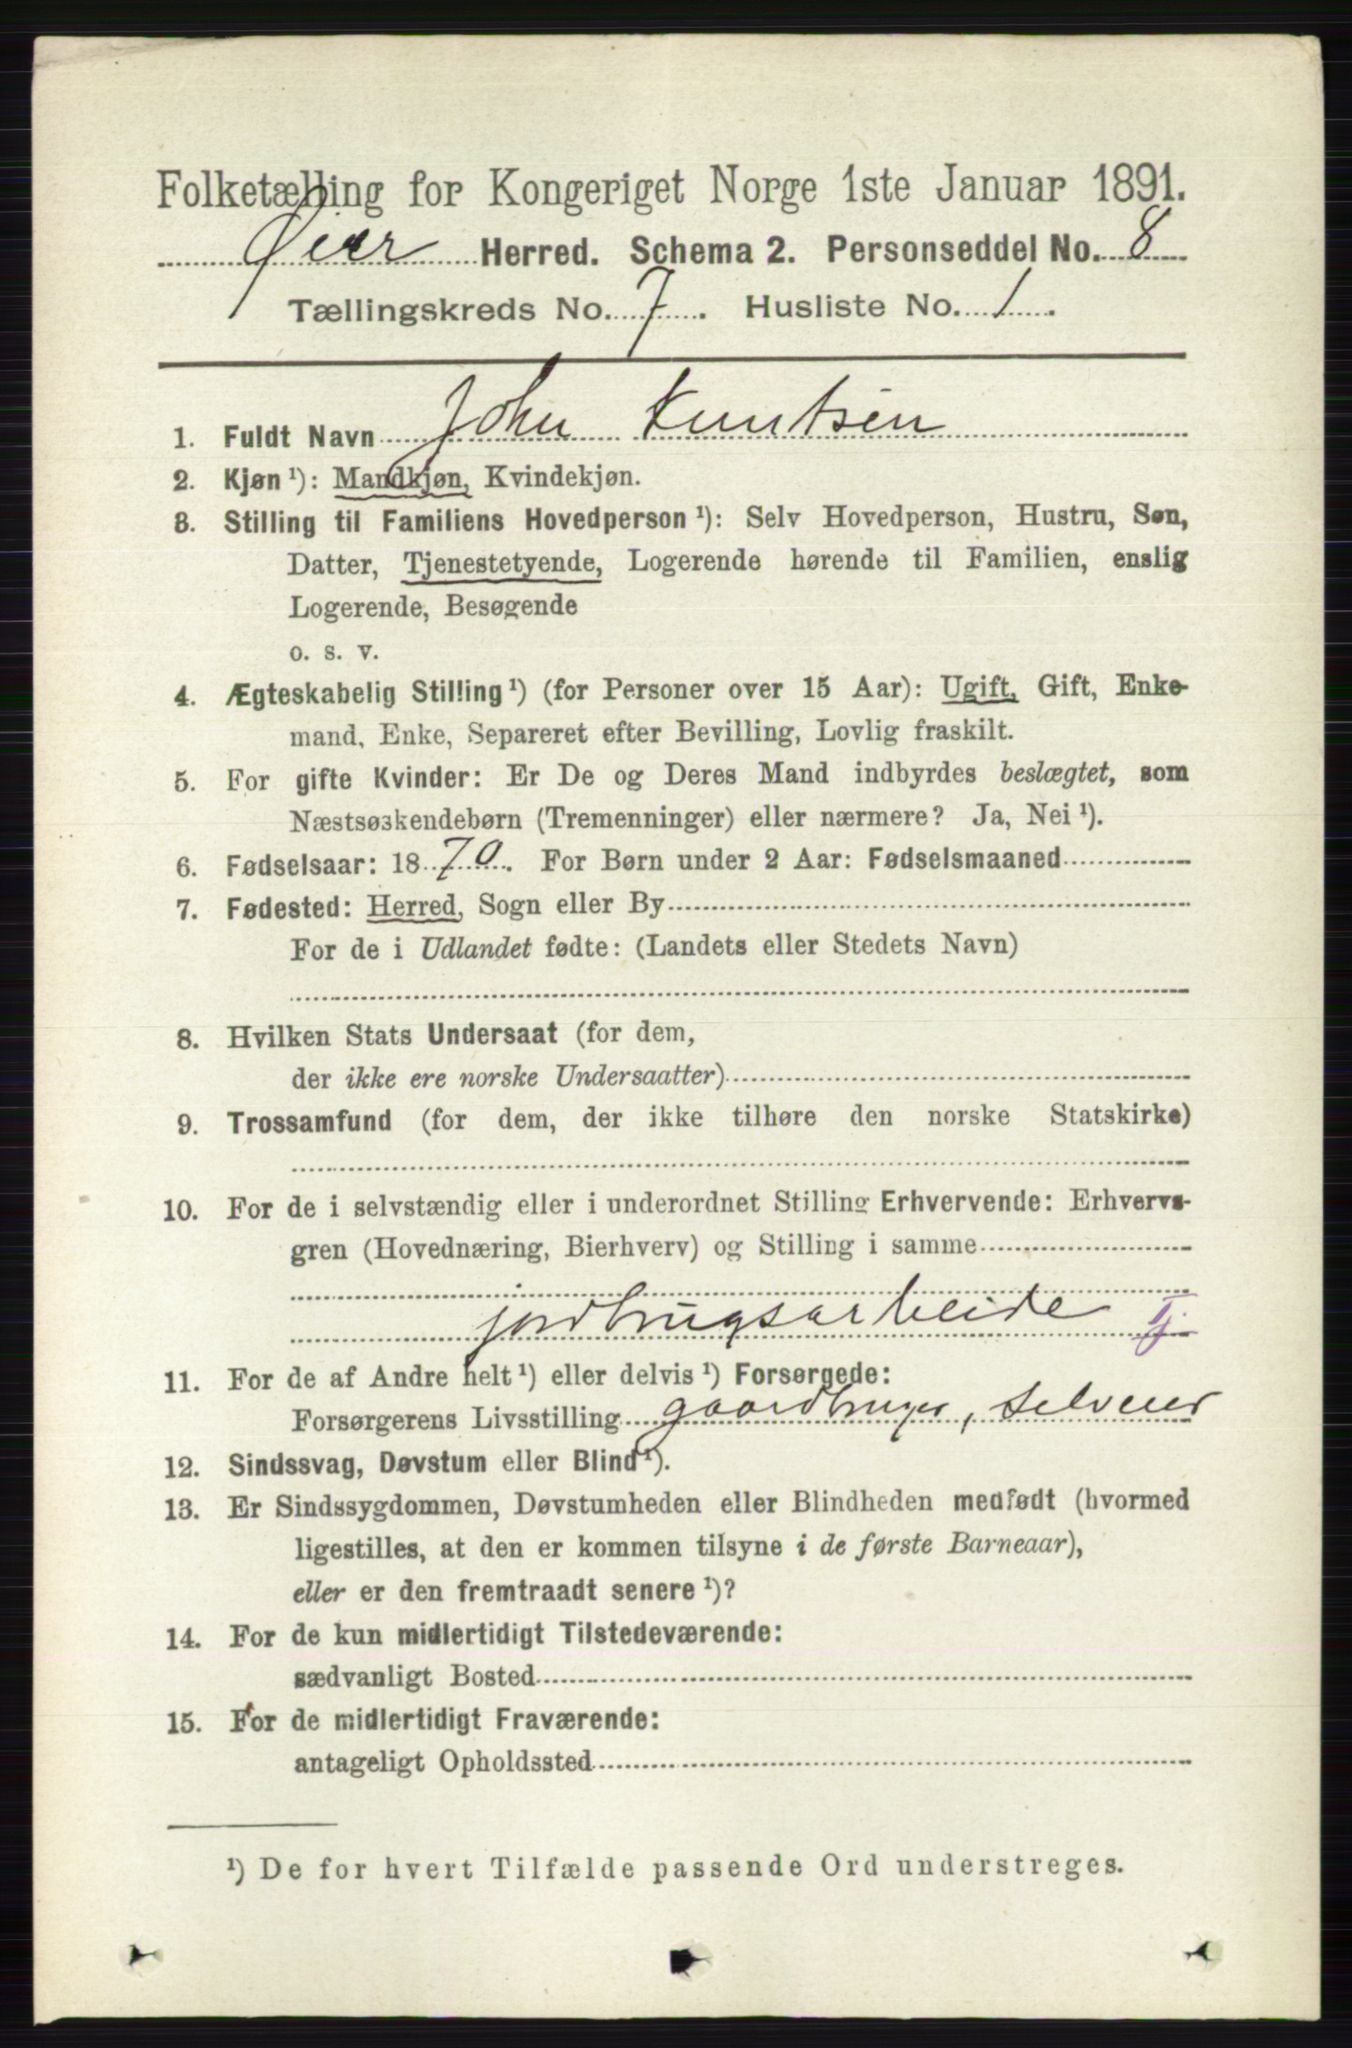 Folketælling for Kongeriget Norge 1ste Januar 1891.
Øier Herred. Schema 2. Personseddel No. 8
Tællingskreds No. 7. Husliste No. 1.
1. Fuldt Navn John Knutsen
2. Kjøn ¹): Mandkjøn, Kvindekjøn.
3. Stilling til Familiens Hovedperson ¹): Selv Hovedperson, Hustru, Søn,
Datter, Tjenestetyende, Logerende hørende til Familien, enslig
Logerende, Besøgende
o. s. v.
4. Ægteskabelig Stilling ¹) (for Personer over 15 Aar): Ugift, Gift, Enke-
mand, Enke, Separeret efter Bevilling, Lovlig fraskilt.
5. For gifte Kvinder: Er De og Deres Mand indbyrdes beslægtet, som
Næstsøskendebørn (Tremenninger) eller nærmere? Ja, Nei ¹).
6. Fødselsaar: 1870. For Børn under 2 Aar: Fødselsmaaned
7. Fødested: Herred, Sogn eller By
For de i Udlandet fødte: (Landets eller Stedets Navn)
8. Hvilken Stats Undersaat (for dem,
der ikke ere norske Undersaatter)
9. Trossamfund (for dem, der ikke tilhøre den norske Statskirke)
10. For de i selvstændig eller i underordnet Stilling Erhvervende: Erhvervs-
gren (Hovednæring, Bierhverv) og Stilling i samme
jordbrugsarbeide Tj.
11. For de af Andre helt ¹) eller delvis ¹) Forsørgede:
Forsørgerens Livsstilling gaardbruger, selveier
12. Sindssvag, Døvstum eller Blind ¹).
13. Er Sindssygdommen, Døvstumheden eller Blindheden medfødt (hvormed
ligestilles, at den er kommen tilsyne i de første Barneaar),
eller er den fremtraadt senere ¹)?
14. For de kun midlertidigt Tilstedeværende:
sædvanligt Bosted
15. For de midlertidigt Fraværende:
antageligt Opholdssted
¹) De for hvert Tilfælde passende Ord understreges.